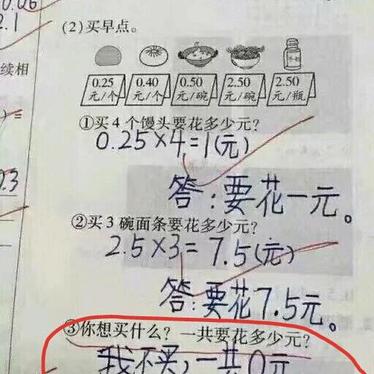 (2)买早点。
0.25 0.40 0.50 2.50 2.50
元/个 元/个 元/碗 元/碗 元/瓶
续相
①买 4 个馒头要花多少元?
0.25×4=1(元)
答:要花一元。
②买 3 碗面条要花多少元?
2.5×3=7.5(元)
答:要花7.5元。
③你想买什么? 一共要花多少元?
我不买,一共0元